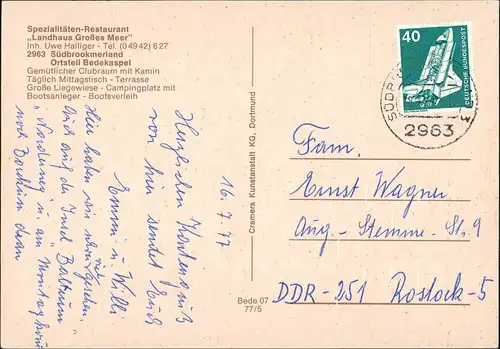 Spezialitäten-Restaurant
„Landhaus Großes Meer"
Inh. Uwe Halliger - Tel. (0 49 42) 6 27
2963 Südbrookmerland
Ortsteil Bedekaspel
Gemütlicher Clubraum mit Kamin
Täglich Mittagstisch - Terrasse
Große Liegewiese - Campingplatz mit
Bootsanleger - Bootsverleih
16.7.77
Herzlichen Kartengruß
von hier sendet Euch
Emmi u. Willi
Hier haben wir
auf der Insel Baltrum
„Norderney" u. am Montag
noch Borkum dran
Cramers Kunstanstalt KG, Dortmund
Bede 07
77/5
40
DEUTSCHE BUNDESPOST
2963
Fam.
Ernst Wagner
Aug.-Stemme-St. 9
DDR-251 Rostock-5